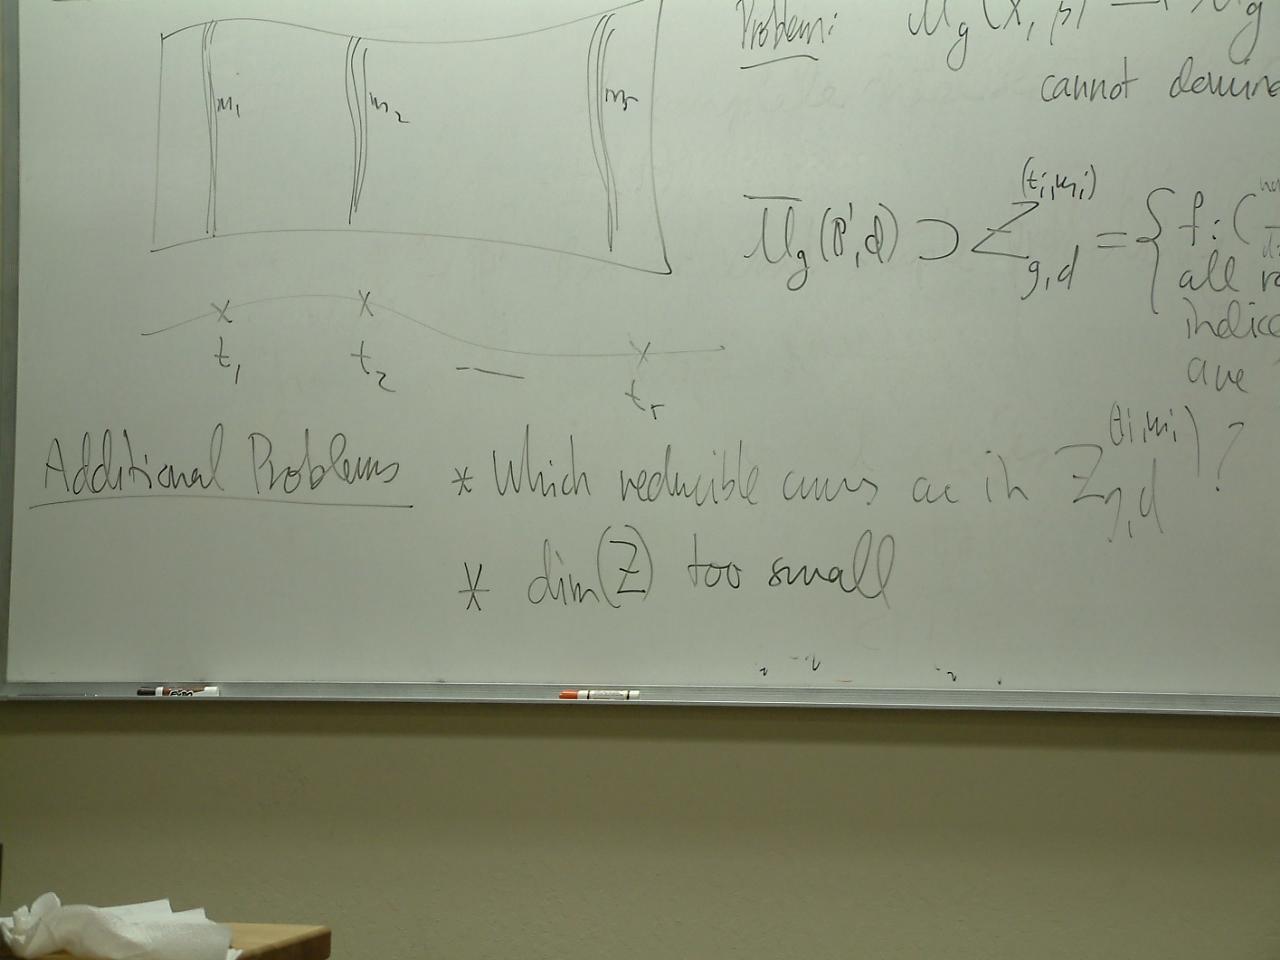 m₁ m₂ mᵣ
t₁ t₂ — tᵣ
Problem: M_g(X, β) → M_g
cannot
M̅_g(P¹,d) ⊃ Z_{g,d}^{(t_i,m_i)} = { f: C
all
are
Additional Problems * Which reducible curves are in Z_{g,d}^{(t_i,m_i)}?
* dim(Z) too small
EXPO